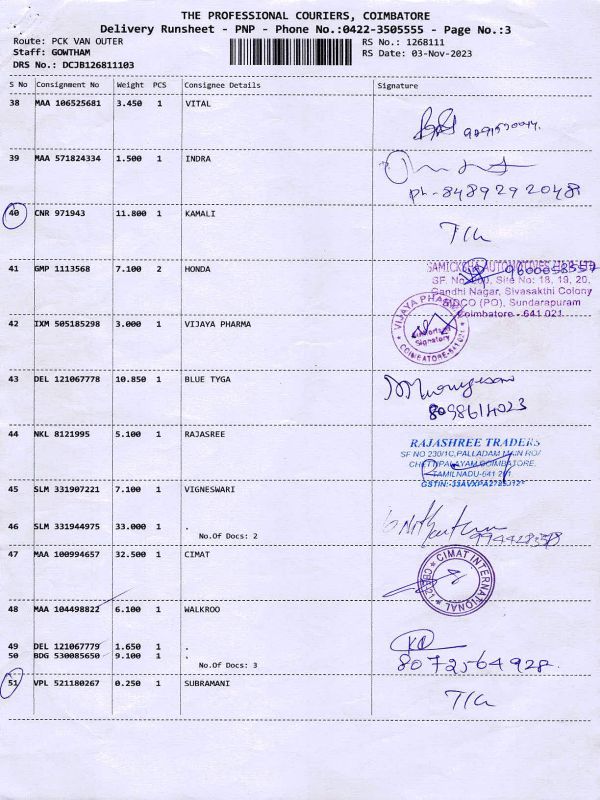 THE PROFESSIONAL COURIERS, COIMBATORE
Delivery Runsheet - PNP - Phone No.:0422-3505555 - Page No.:3
Route: PCK VAN OUTER RS No.: 1268111
Staff: GOWTHAM RS Date: 03-Nov-2023
DRS No.: DCJB126811103
S No Consignment No Weight PCS Consignee Details Signature
38 MAA 106525681 3.450 1 VITAL
39 MAA 571824334 1.500 1 INDRA
Ph- 8489292048
40 CNR 971943 11.800 1 KAMALI
41 GMP 1113568 7.100 2 HONDA
9600058557
Gandhi Nagar, Sivasakthi Colony
SIDCO (PO), Sundarapuram
Coimbatore - 641 021
42 IXM 505185298 3.000 1 VIJAYA PHARMA
VIJAYA PHARMA
Signatory
COIMBATORE-641 021
43 DEL 121067778 10.850 1 BLUE TYGA
8098614023
44 NKL 8121995 5.100 1 RAJASREE
RAJASHREE TRADERS
SF NO 230/1C,PALLADAM MAIN RO/
CHETTIPALAYAM,COIMBATORE,
TAMILNADU-641 201
45 SLM 331907221 7.100 1 VIGNESWARI
46 SLM 331944975 33.000 1 .
No.Of Docs: 2
47 MAA 100994657 32.500 1 CIMAT
CIMAT INTERNATIONAL
48 MAA 104498822 6.100 1 WALKROO
49 DEL 121067779 1.650 1 .
50 BDG 530085650 9.100 1 .
No.Of Docs: 3
8072564928.
51 VPL 521180267 0.250 1 SUBRAMANI